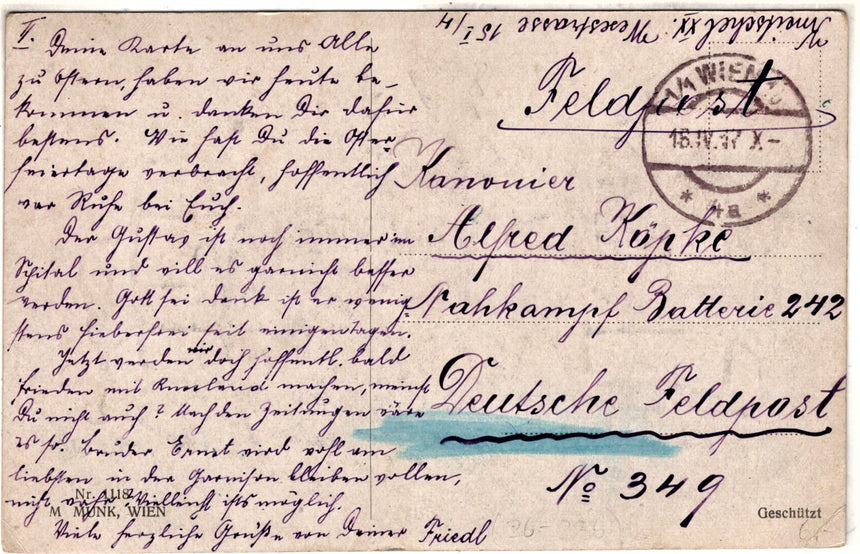 II.
Deine Karte an uns Alle
zu Ostern, haben wir heute be-
kommen u. danken Dir dafür
bestens. Wie hast Du die Oster-
feiertage verbracht, hoffentlich
war Ruhe bei Euch.
Der Gustav ist noch immer im
Spital und will es garnicht besser
werden. Gott sei dank ist er wenig-
stens fieberfrei seit einigen Tagen.
Jetzt werden wir doch hoffentl. bald
Frieden mit Russland machen, meinst
Du nicht auch? Nach den Zeitungen wäre
es so. Bruder Ernst wird wohl am
liebsten in der Garnison bleiben wollen,
nicht wahr? Vielleicht ists möglich.
Viele herzliche Grüße von Deiner Friedl
Nr. 1118
M MUNK, WIEN
XX. strasse 15 I/4
WIEN
16.IV.17 X-
* 4a *
Feldpost
Kanonier
Alfred Köpke
Nahkampf Batterie 242
Deutsche Feldpost
No 349
Geschützt